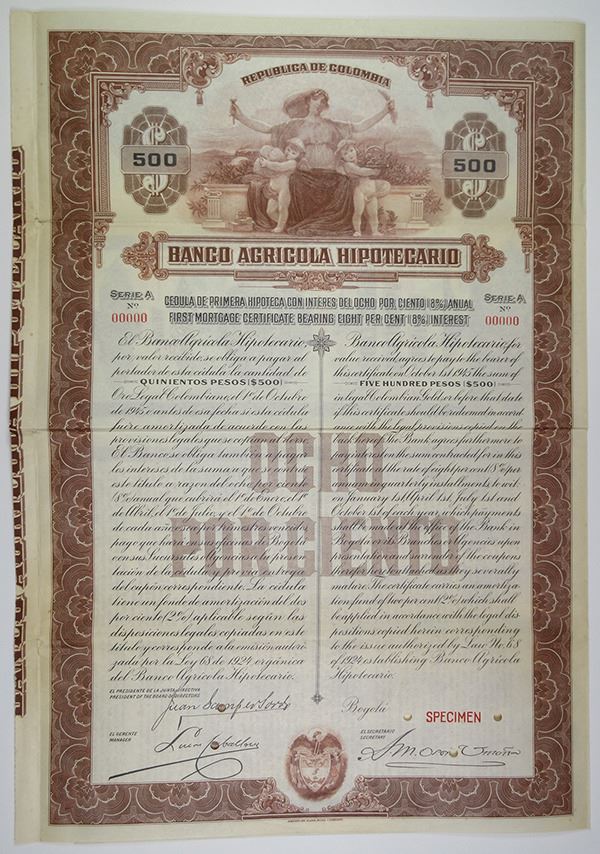 REPUBLICA DE COLOMBIA
500
500
BANCO AGRICOLA HIPOTECARIO
SERIE A
Nº
00000
CEDULA DE PRIMERA HIPOTECA CON INTERES DEL OCHO POR CIENTO (8%) ANUAL
FIRST MORTGAGE CERTIFICATE BEARING EIGHT PER CENT (8%) INTEREST
SERIE A
Nº
00000
El Banco Agrícola Hipotecario,
por valor recibido, se obliga a pagar al
portador de esta cédula la cantidad de
QUINIENTOS PESOS ($500)
Oro Legal Colombiano, el 1º de Octubre
de 1945 o antes de esa fecha si esta cédula
fuere amortizada de acuerdo con las
provisiones legales que se copian
El Banco se obliga también a pagar
los intereses de la suma a que se contrae
este título a razón del ocho
8% anual que cubrirá el 1º de Enero, el 1º
de Abril, el 1º de Julio y el 1º de Octubre
de cada año en
pago que hará en Bogotá o en
sus Sucursales o Agencias a la presen-
tación de la cédula y previa entrega
del cupón correspondiente. La cédula
tiene un fondo de amortización del dos
por ciento (2%) aplicable según las
disposiciones legales copiadas en este
título y corresponde a la emisión autori-
zada por la Ley 68 de 1924 orgánica
del Banco Agrícola Hipotecario.
Banco Agrícola Hipotecario, for
value received, agrees to pay to the bearer of
this certificate on October 1st 1945 the sum of
FIVE HUNDRED PESOS ($500)
in legal Colombian Gold, or before that date
if this certificate should be redeemed in accord-
ance with the legal provisions copied on the
The Bank agrees furthermore to
pay interest on the sum contracted for in this
certificate at the rate of eight per cent 8% per
annum in quarterly installments to wit:
on January 1st, April 1st, July 1st and
October 1st of each year, which payments
shall be made at the office of the Bank in
Bogotá or its Branches or Agencies upon
presentation and surrender of the coupons
hereto attached as they severally
mature. The certificate carries an amortiza-
tion fund of two per cent (2%) which shall
be applied in accordance with the legal dis-
positions copied herein corresponding
to the issue authorized by Law No. 68
of 1924 establishing Banco Agrícola
Hipotecario.
OCHO
POR CIENTO
EL PRESIDENTE DE LA JUNTA DIRECTIVA
PRESIDENT OF THE BOARD OF DIRECTORS
Bogotá
SPECIMEN
EL GERENTE
MANAGER
EL SECRETARIO
SECRETARY